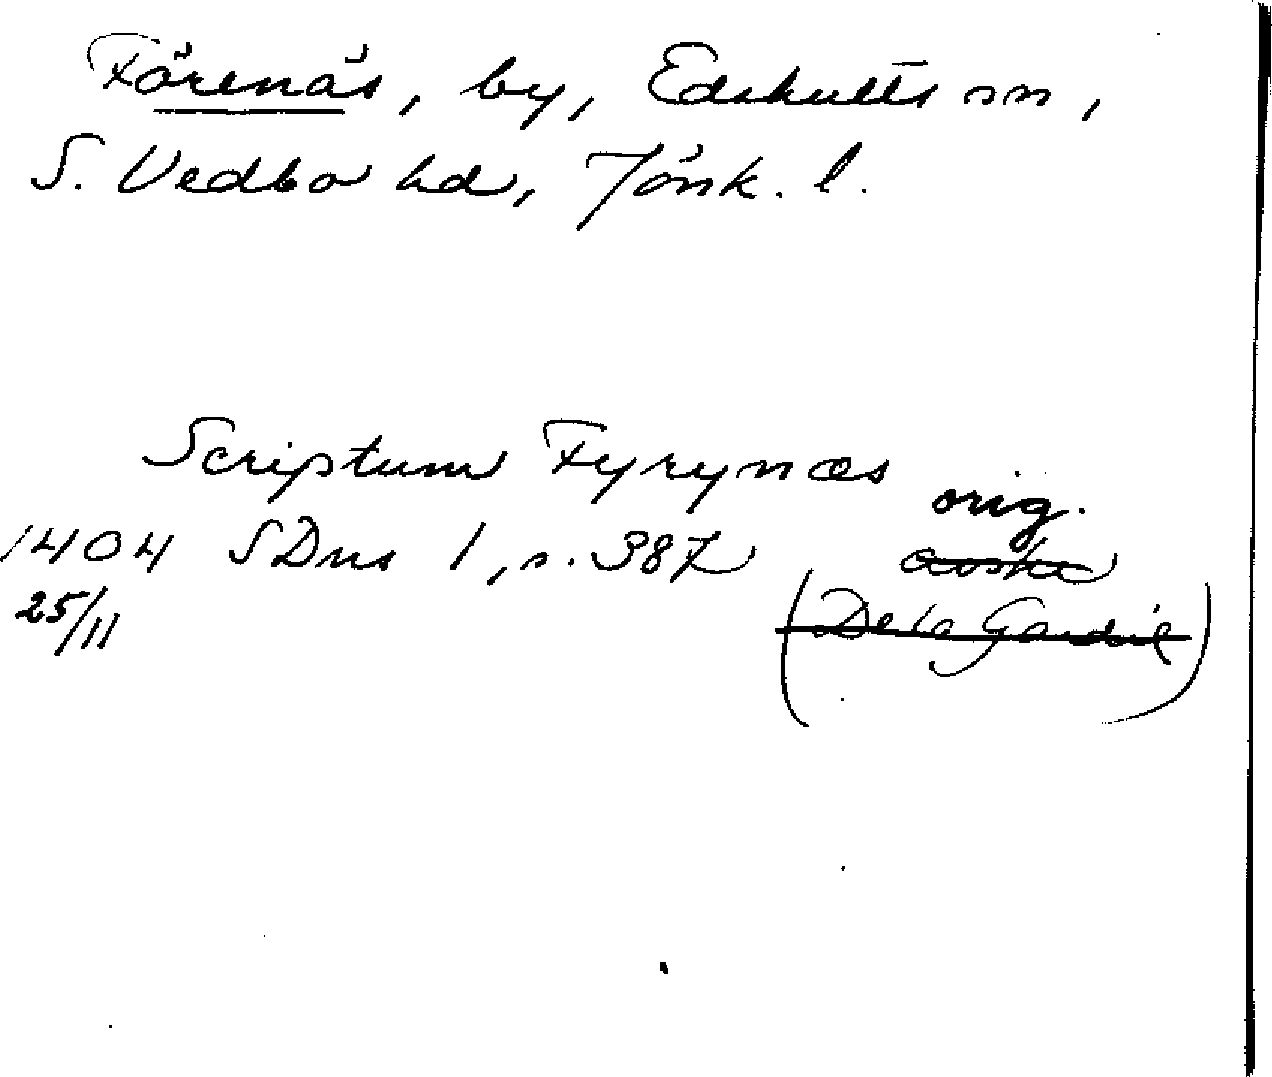 Förenäs, by, Edshults sn,
S. Vedbo hd, Jönk. l.
Scriptum Fyrynæs
orig.
1404 SDns 1, s. 387 avskr
25/11 (De la Gardie)